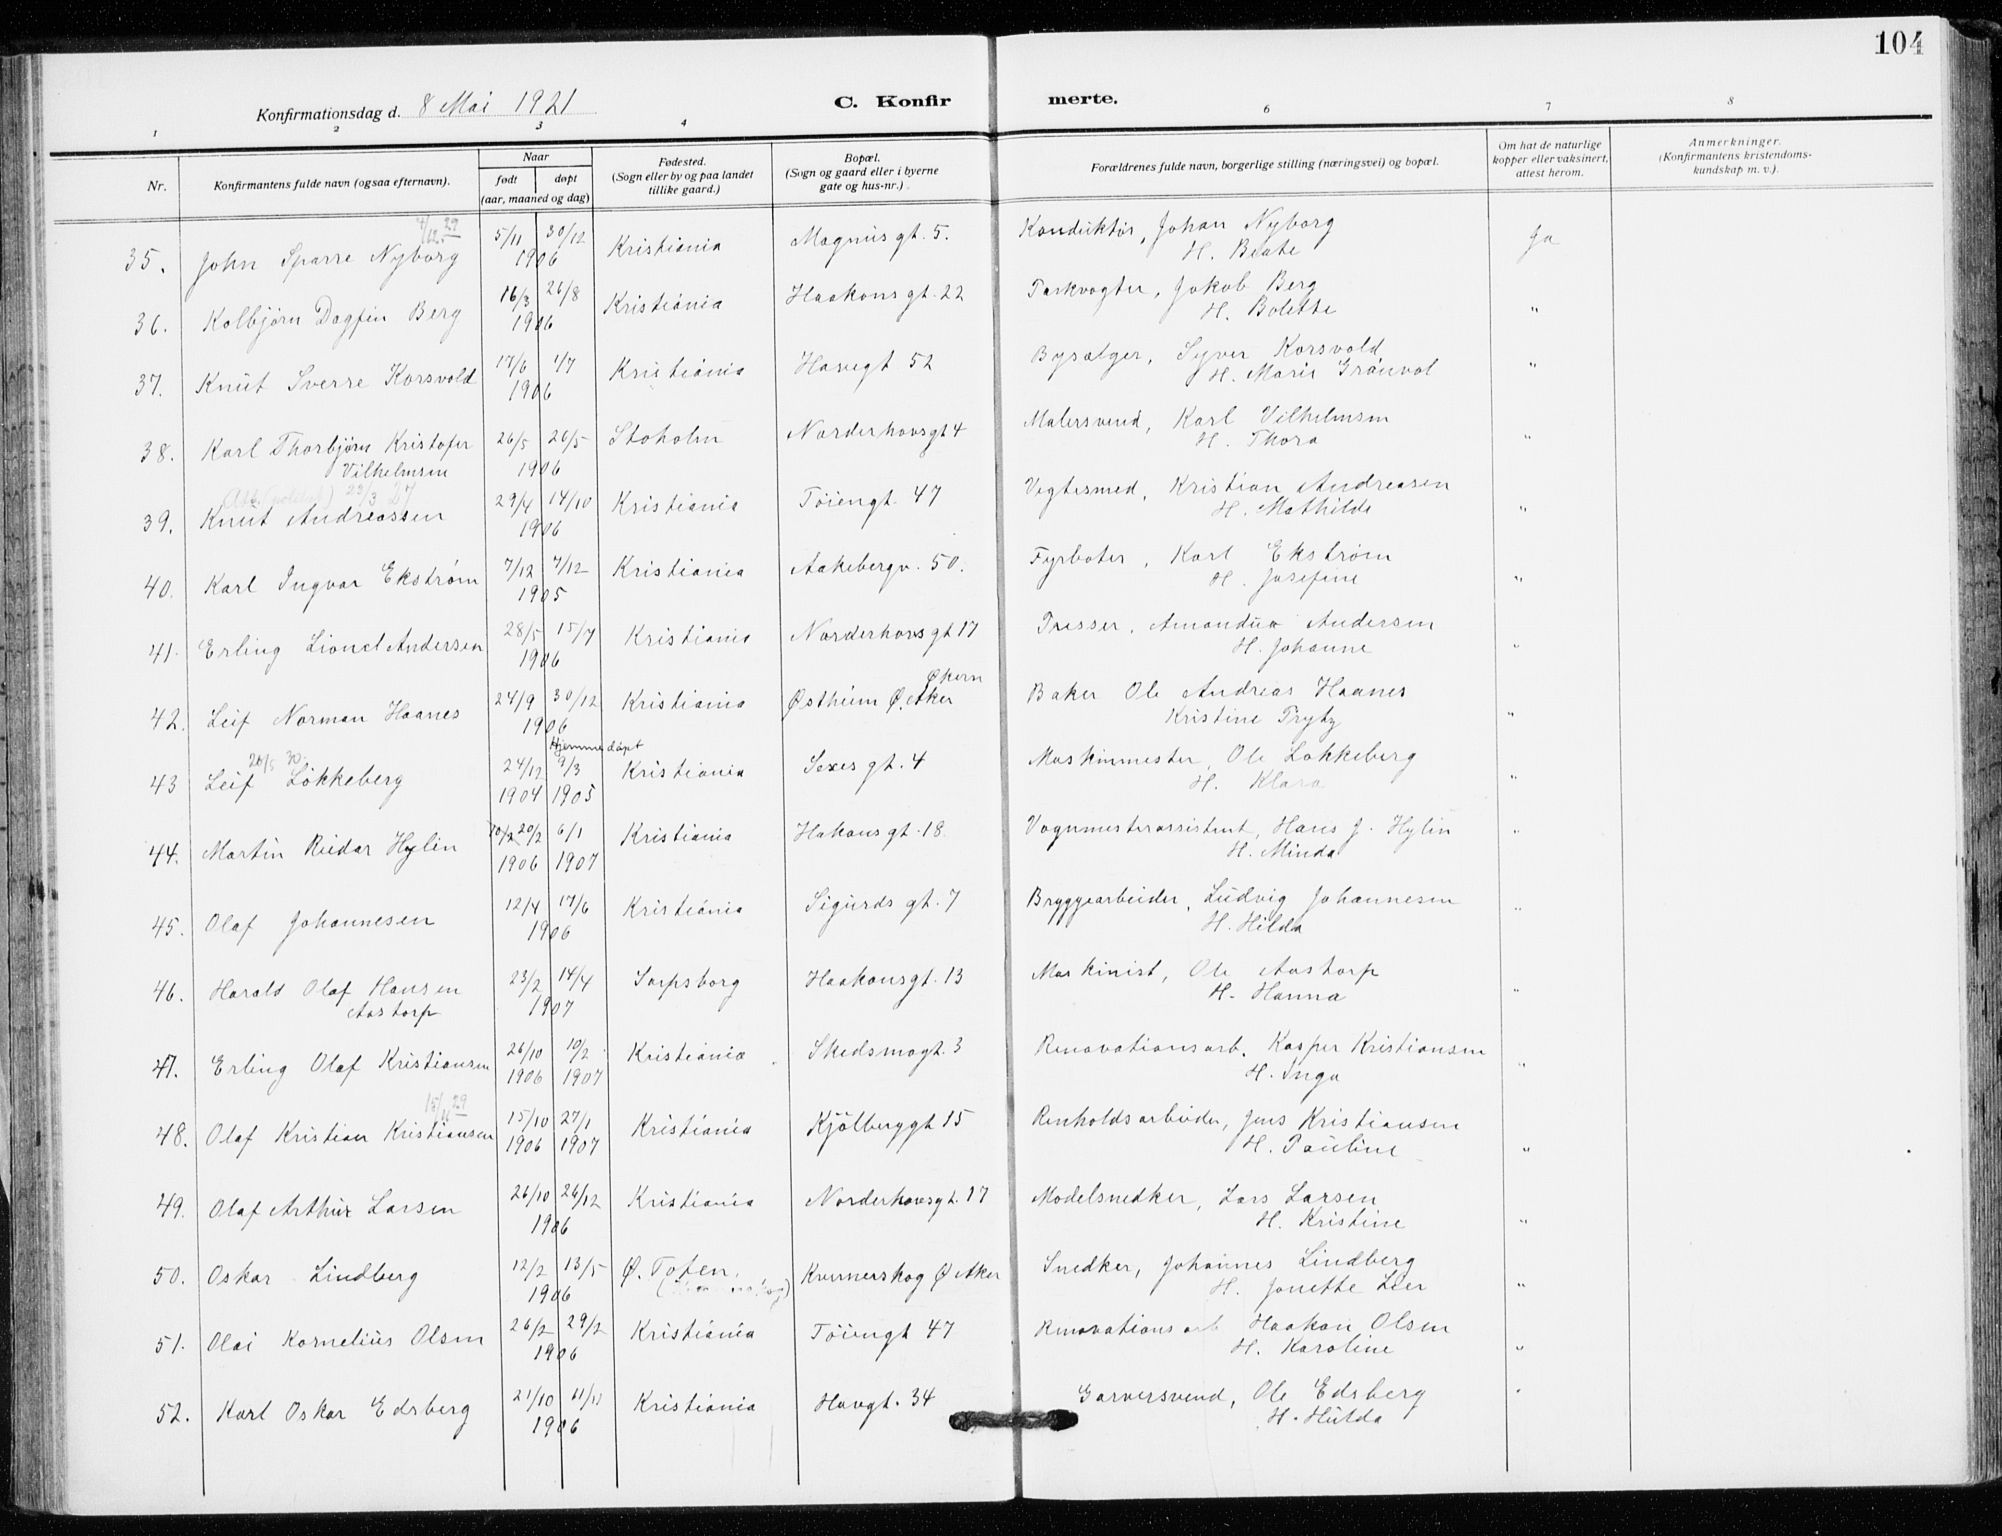 104
Konfirmationsdag d. 8 Mai 1921 C. Konfir merte.
1 2 3 4 6 7 8
Nr. Konfirmantens fulde navn (ogsaa efternavn). Naar født døpt (aar, maaned og dag) Fødested. (Sogn eller by og paa landet tillike gaard.) Bopæl. (Sogn og gaard eller i byerne gate og hus-nr.) Forældrenes fulde navn, borgerlige stilling (næringsvei) og bopæl. Om hat de naturlige kopper eller vaksinert, attest herom. Anmerkninger. (Konfirmantens kristendoms-kundskap m. v.).
4/12 29
35. John Sparre Nyborg 5/11 30/12 1906 Kristiania Magnus gt. 5. Konduktör, Johan Nyborg Ja
H. Beate
36. Kolbjörn Dagfin Berg 16/3 26/8 1906 Kristiania Haakons gt. 22 Parkvogter, Jakob Berg "
H. Bolette
37. Knut Sverre Korsvold 17/6 1/7 1906 Kristiania Havegt 52 Bysælger, Syver Korsvold "
H. Marie Grönvol
38. Karl Thorbjørn Kristofer 26/5 26/5 1906 Stoholm Norderhovsgt 4 Malersvend, Karl Vilhelmsen "
Vilhelmsen H. Thora
23/3 27
39. Knut Andreassen 29/4 14/10 1906 Kristiania Töiengt. 47 Vegtesmed, Kristian Andreasen "
H. Mathilde
40. Karl Ingvar Ekström 7/12 7/12 1905 Kristiania Aakebergv. 50. Fyrböter, Karl Ekström "
H. Josefine
41. Erling Lionel Andersen 28/5 15/7 1906 Kristiania Norderhovsgt 17 Presser, Amandus Andersen "
H. Johanne
Økern
42. Leif Norman Haanes 24/9 30/12 1906 Kristiania Østheim Ø. Aker Baker Ole Andreas Haanes "
Kristine Frytz
26/5 30 Hjemmedöpt
43 Leif Lökkeberg 24/12 1904 9/3 1905 Kristiania Sexes gt. 4 Maskinmester, Ole Lökkeberg "
H. Klara
44. Martin Reidar Hylin 20/2 20/2 1906 6/1 1907 Kristiania Hakons gt. 18. Vognmesterassistent, Hans J. Hylin "
H. Minda
45. Olaf Johannesen 12/4 17/6 1906 Kristiania Sigurds gt. 7 Bryggearbeider, Ludvig Johannesen "
H. Hilda
46. Harald Olaf Hansen 23/2 14/4 1907 Sarpsborg Haakonsgt. 13 Maskinist, Ole Aastorp "
Aastorp H. Hanna
47. Erling Olaf Kristiansen 26/10 1906 10/2 1907 Kristiania Skedsmogt. 3 Renovationsarb. Kasper Kristiansen "
H. Inga
15/11 29
48. Olaf Kristian Kristiansen 15/10 1906 27/1 1907 Kristiania Kjölberggt 15 Renholdsarbeider, Jens Kristiansen "
H. Pauline
49. Olaf Arthur Larsen 26/10 26/12 1906 Kristiania Norderhovsgt. 17 Modelsnedker, Lars Larsen "
H. Kristine
50. Oskar Lindberg 12/2 13/5 1906 Ø. Toten. Kvernerskog Ø Aker Snedker, Johannes Lindberg "
H. Jonette Lier
51. Olai Kornelius Olsen 26/2 29/2 1906 Kristiania Töiengt 47 Renovationsarb Haakon Olsen "
H. Karoline
52. Karl Oskar Edsberg 21/10 11/11 1906 Kristiania Havgt. 34 Garversvend, Ole Edsberg "
H. Hulda